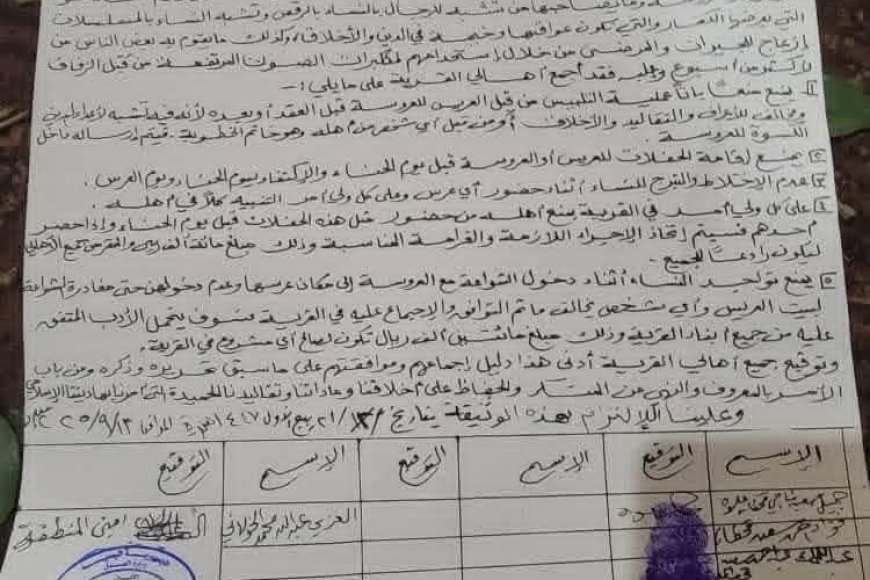 صاحبها من تشبه للرجال بالنساء بالرقص وتشبه النساء بالمسلسلات
التي يعرضها التلفاز والتي تكون عواقبها وخيمة في الدين والأخلاق وكذلك ما يقوم به بعض الناس من
إزعاج للجيران والمرضى من خلال إستخدامهم لمكبرات الصوت المرتفعة من قبل الزفاف
لأكثر من أسبوع وعليه فقد أجمع أهالي القرية على ما يلي :-
1 يمنع منعاً باتاً عملية التلبيس من قبل العريس للعروسة قبل العقد أو بعده لأنه فيه تشبه
ومخالف للأعراف والتقاليد والأخلاق أو من قبل أي شخص من أهله وهو خاتم الخطوبة. فيتم إرساله داخل
الكسوة للعروسة.
2 يمنع إقامة الحفلات للعريس أو العروسة قبل يوم الحناء والإكتفاء بيوم الحناء ويوم العرس.
3 عدم الإختلاط والتبرج للنساء أثناء حضور أي عرس وعلى كل ولي أمر التنبيه كلاً في أهله.
4 على كل ولي أمر في القرية يمنع أهله من حضور مثل هذه الحفلات قبل يوم الحناء وإذا حضر
أحدهم فسيتم إتخاذ الإجراء اللازمة والغرامة المناسبة وذلك مبلغ مائة ألف ريال من جميع الأهالي
ليكون رادعاً للجميع.
5 يمنع تواجيد النساء أثناء دخول التواعة مع العروسة إلى مكان عرسها وعدم دخولهن حتى مغادرة الشواعة
لبيت العريس وأي شخص يخالف ما تم التوافق والإجماع عليه في القرية فسوف يتحمل الأدب المتفق
عليه من جميع أبناء القرية وذلك مبلغ مائتين ألف ريال تكون لصالح أي مشروع في القرية.
وتوقيع جميع أهالي القرية أدنى هذا دليل إجماعهم وموافقتهم على ما سبق تحريره وذكره ومن باب
الأمر بالمعروف والنهي عن المنكر والحفاظ على أخلاقنا وعاداتنا وتقاليدنا الحميدة
وعلينا الإلتزام بهذه الوثيقة بتاريخ 21/ ربيع الأول 1447 الموافق 25/9/13
الإسم التوقيع الإسم التوقيع الإسم التوقيع
العزي عبدالله محمد الخولاني أمين المنطقة